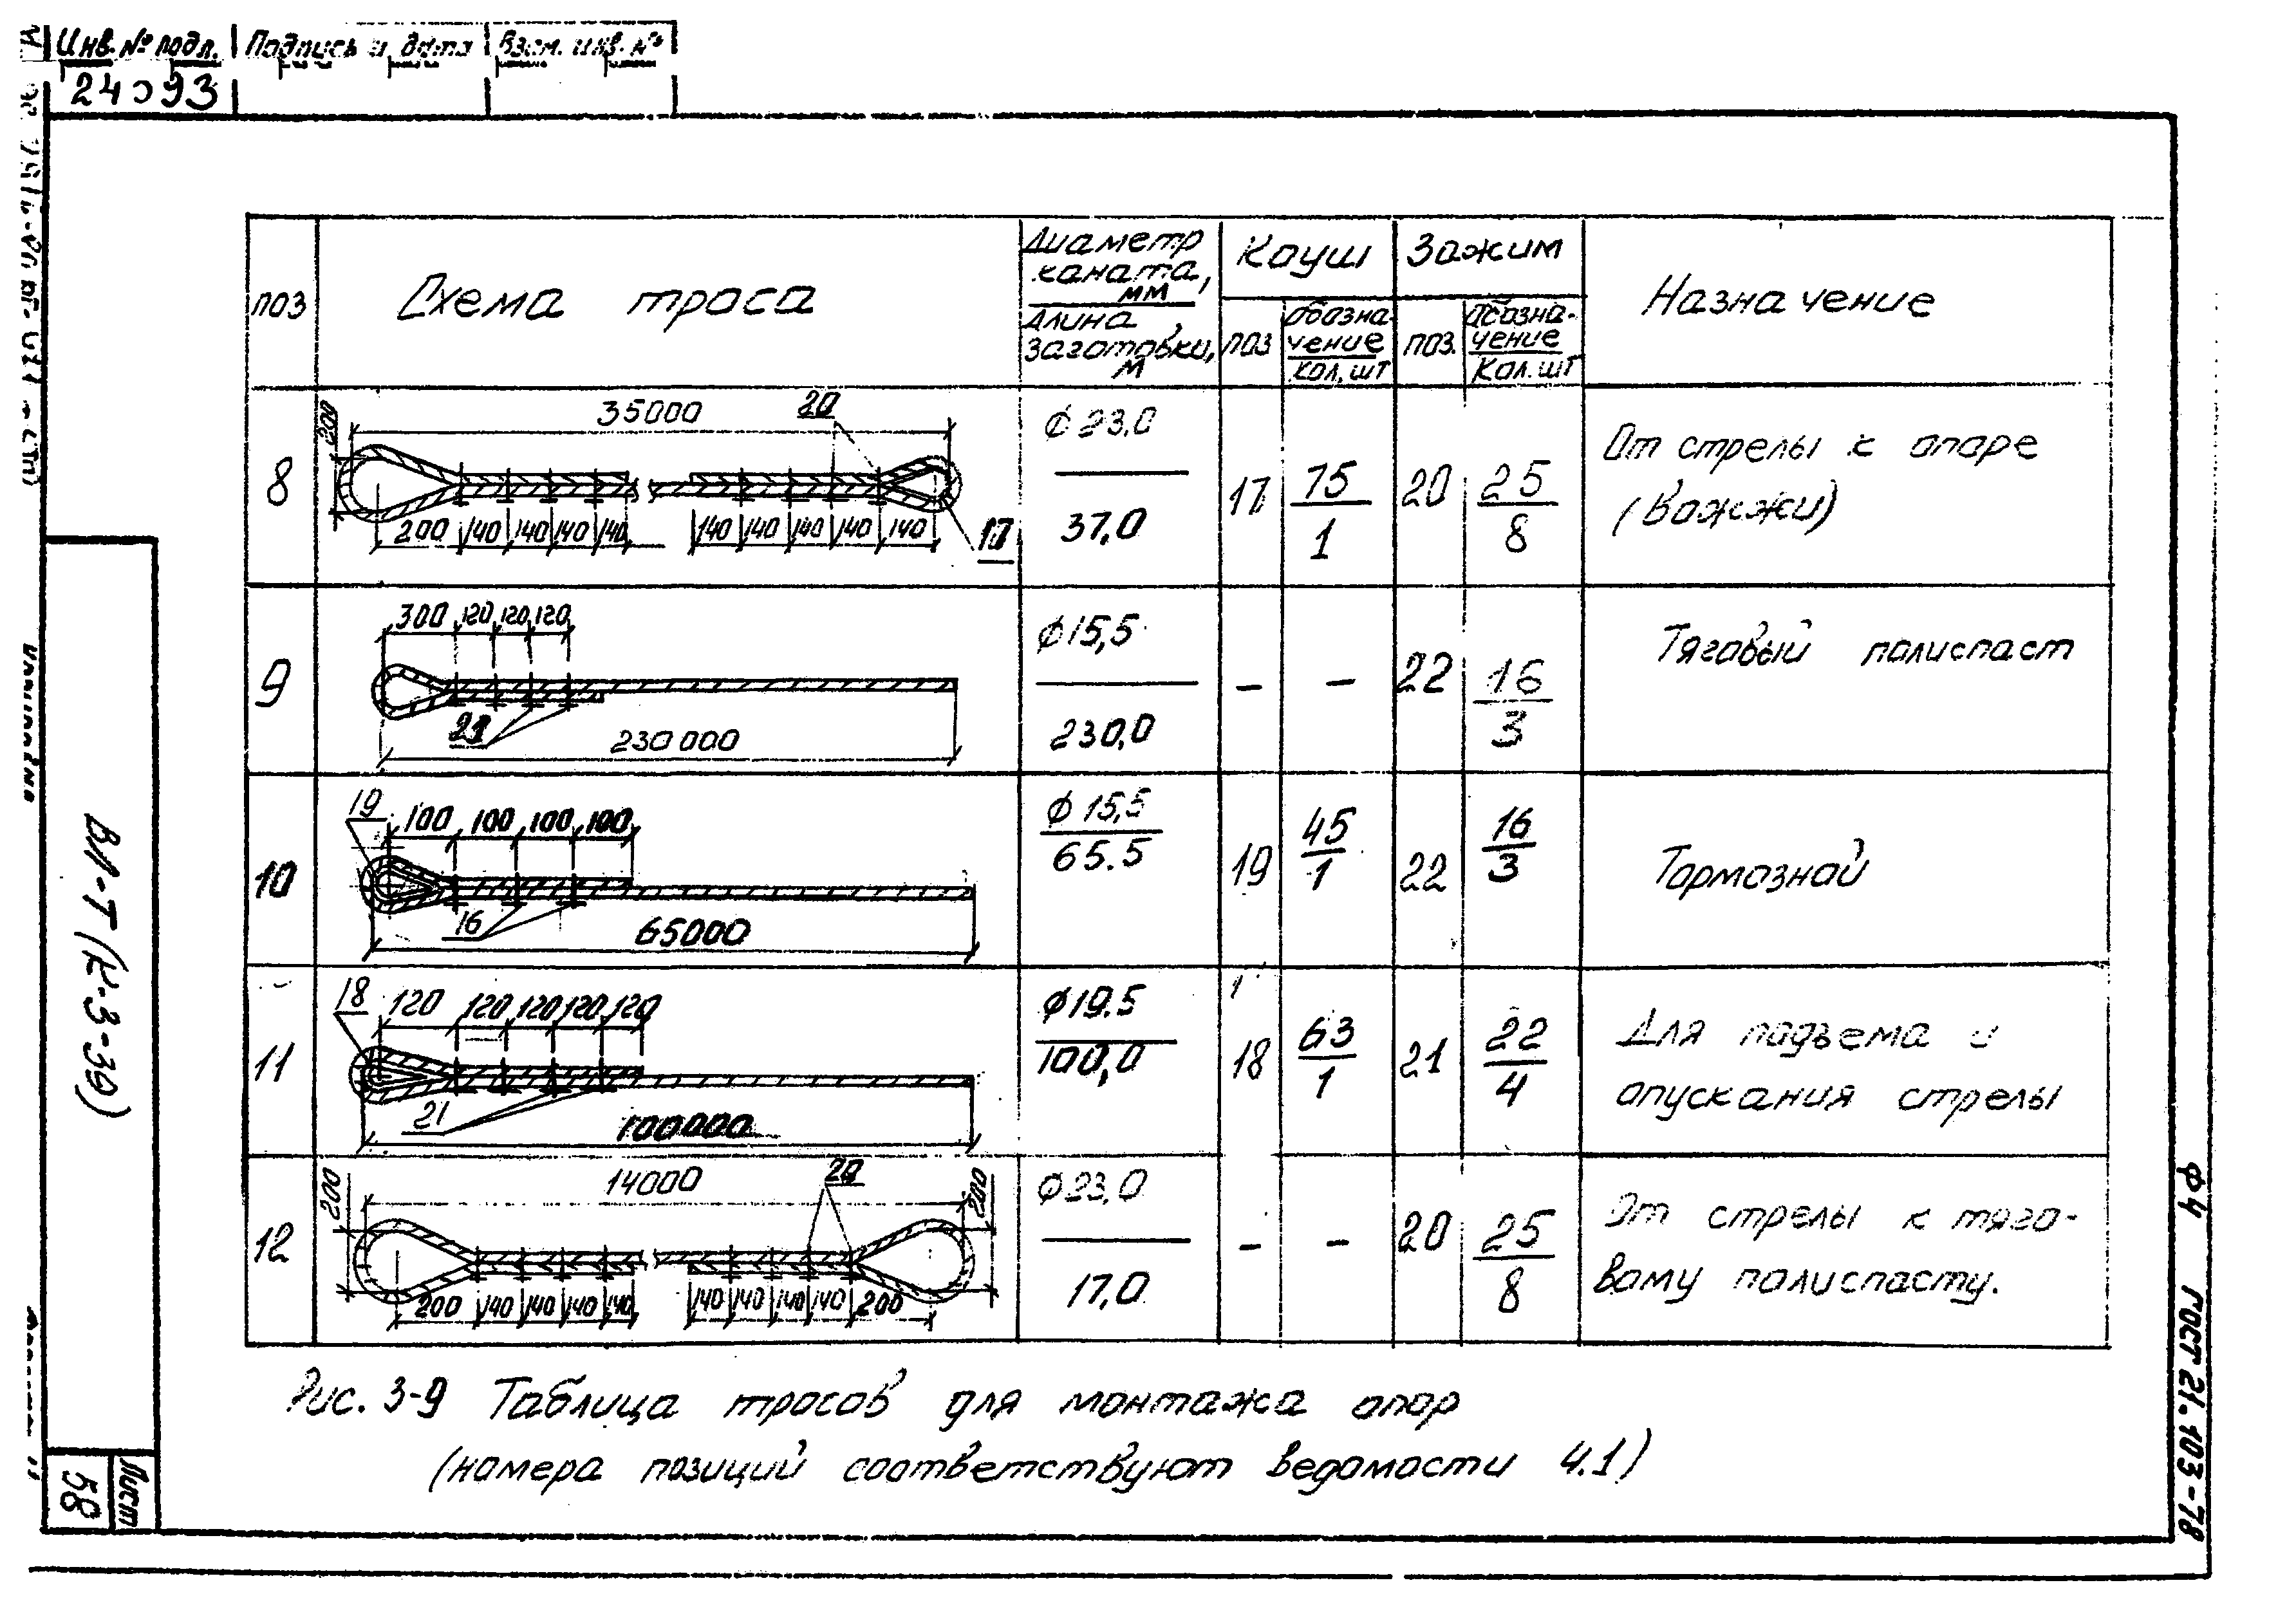 Инв. № подл. Подпись и дата Взам. инв. №
ВЛ-Т (К-3-39)
Лист
58
поз
Схема троса
Диаметр
каната,
мм
Длина
заготовки,
м
Кауш
Зажим
поз
Обозна-
чение
кол, шт
поз.
Обозна-
чение
Кол. шт
Назначение
8
200
35000
20
200 140 140 140 140
140 140 140 140 140
17
ϕ 23,0
37,0
17
75
1
20
25
8
От стрелы к опоре
(Вожжи)
9
300 120 120 120
230 000
ϕ15,5
230,0
– –
22
16
3
Тяговый полиспаст
10
19
100 100 100 100
16
65000
ϕ 15,5
65.5
19
45
1
22
16
3
Тормозной
11
18
120 120 120 120 120
21
100000
ϕ19.5
100,0
18
63
1
21
22
4
Для подъема и
опускания стрелы
12
200
14000
20
200
200 140 140 140 140
140 140 140 140 200
ϕ23,0
17,0
– –
20
25
8
От стрелы к тяго-
вому полиспасту.
Рис. 3-9 Таблица тросов для монтажа опор
(номера позиций соответствуют ведомости 4.1)
Ф4 ГОСТ 21.103-78